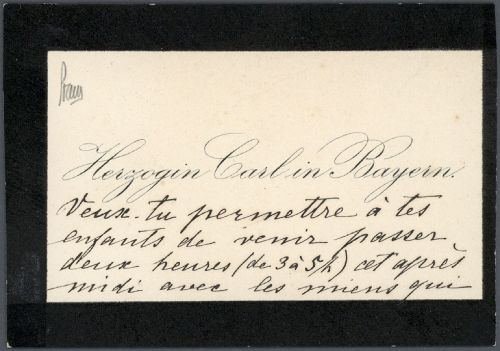 Herzogin Carl in Bayern.
Veux-tu permettre à tes
enfants de venir passer
deux heures (de 3 à 5h) cet après
midi avec les miens qui